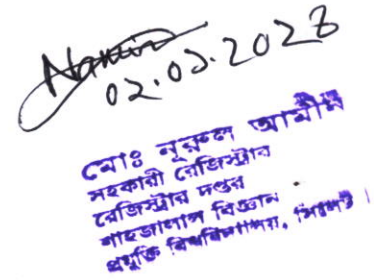 02.05.2023
মোঃ নূরুল আমীন
সহকারী রেজিস্ট্রার
রেজিস্ট্রার দপ্তর
শাহজালাল বিজ্ঞান
প্রযুক্তি বিশ্ববিদ্যালয়, সিলেট।